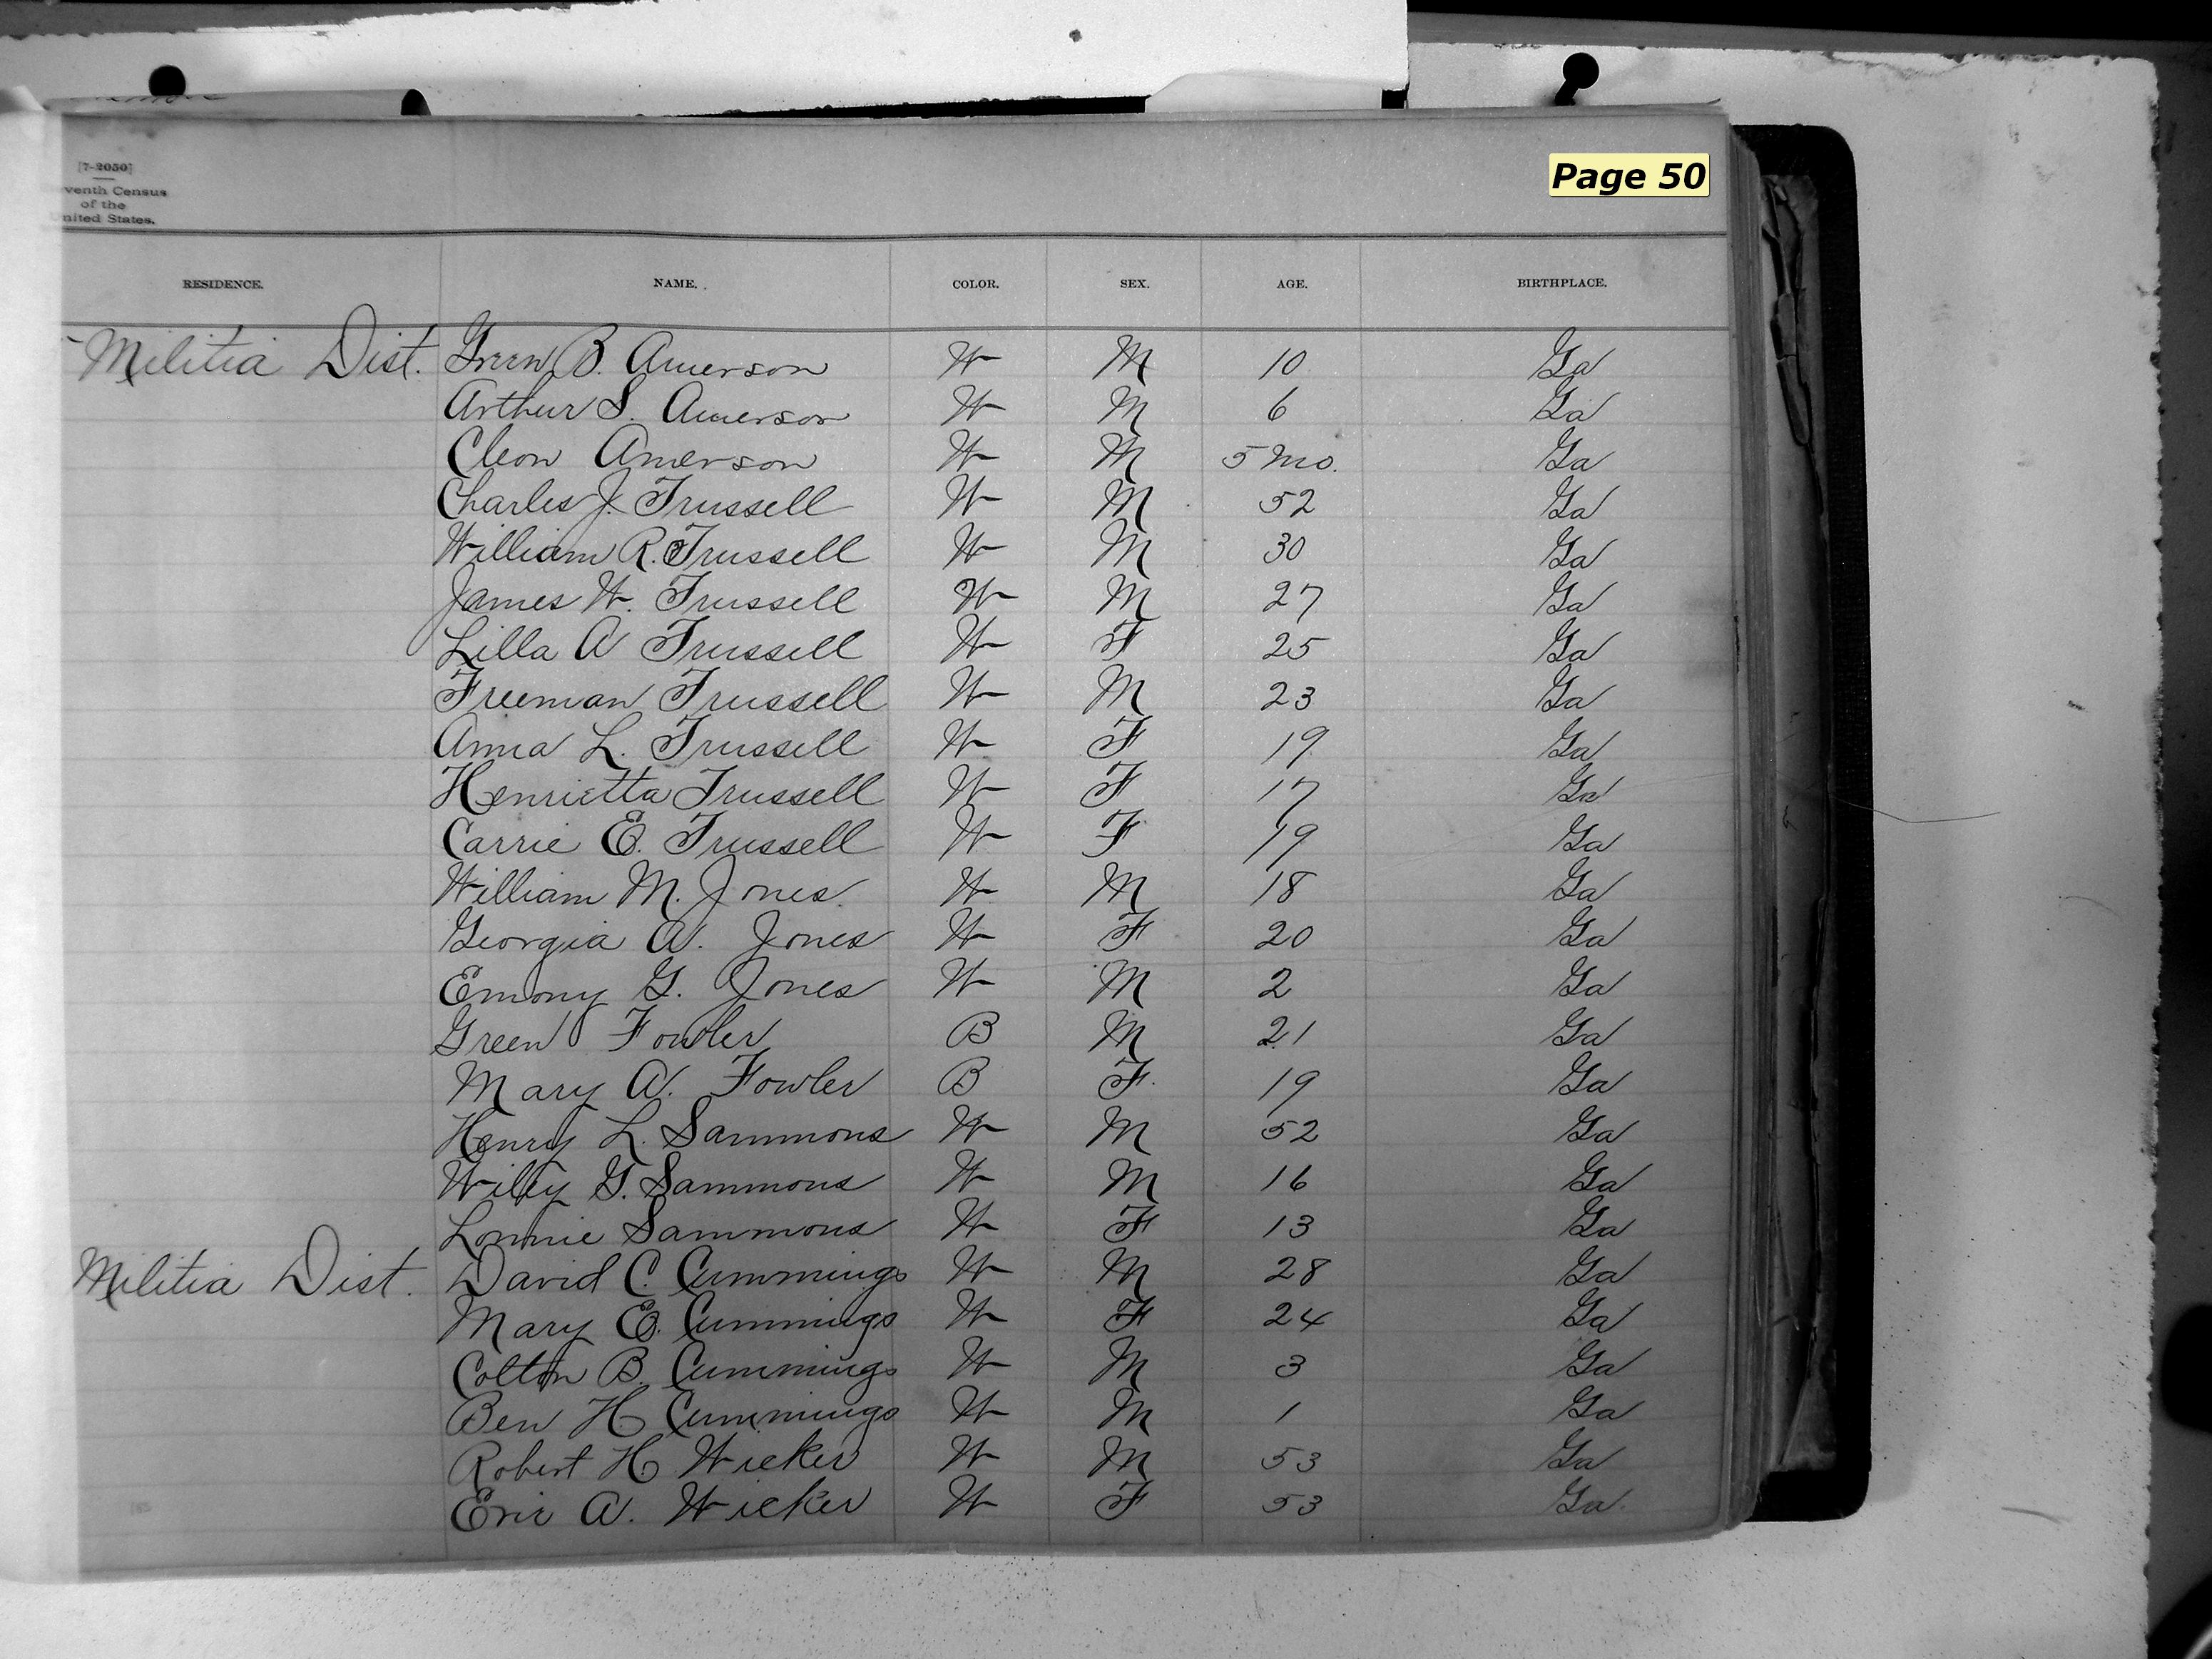 Page 50
[7-2050]
venth Census
of the
nited States.
RESIDENCE. NAME. COLOR. SEX. AGE. BIRTHPLACE.
Militia Dist. Green B. Amerson W M 10 Ga
Arthur S. Amerson W M 6 Ga
Cleon Amerson W M 5 mo. Ga
Charles J. Trussell W M 52 Ga
William R. Trussell W M 30 Ga
James W. Trussell W M 27 Ga
Lilla A Trussell W F 25 Ga
Freeman Trussell W M 23 Ga
Anna L. Trussell W F 19 Ga
Henrietta Trussell W F 17 Ga
Carrie E. Trussell W F 19 Ga
William M. Jones W M 18 Ga
Georgia A. Jones W F 20 Ga
Emony G. Jones W M 2 Ga
Green Fowler B M 21 Ga
Mary A. Fowler B F. 19 Ga
Henry L. Sammons W M 52 Ga
Wiley G. Sammons W M 16 Ga
Lonnie Sammons W F 13 Ga
Militia Dist. David C. Cummings W M 28 Ga
Mary E. Cummings W F 24 Ga
Colton B. Cummings W M 3 Ga
Ben H. Cummings W M 1 Ga
Robert H Wicker W M 53 Ga
Evie A. Wicker W F 53 Ga.